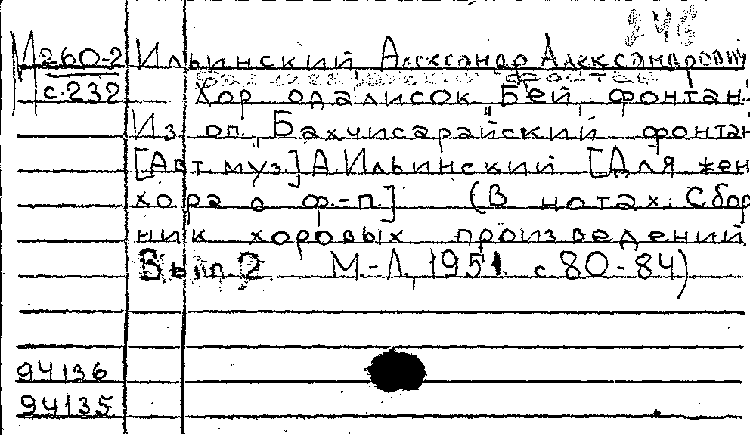 246
М260-2 Ильинский Александр Александрович
с.232 Хор одалисок "Бей, фонтан"
Из оп. "Бахчисарайский фонтан
[Авт муз.] А.Ильинский [Для жен
хора с ф.-п.] (В нотах: Сбор
ник хоровых произведений
Вып. 2 М.-Л, 1951. с 80-84)
94136
94135